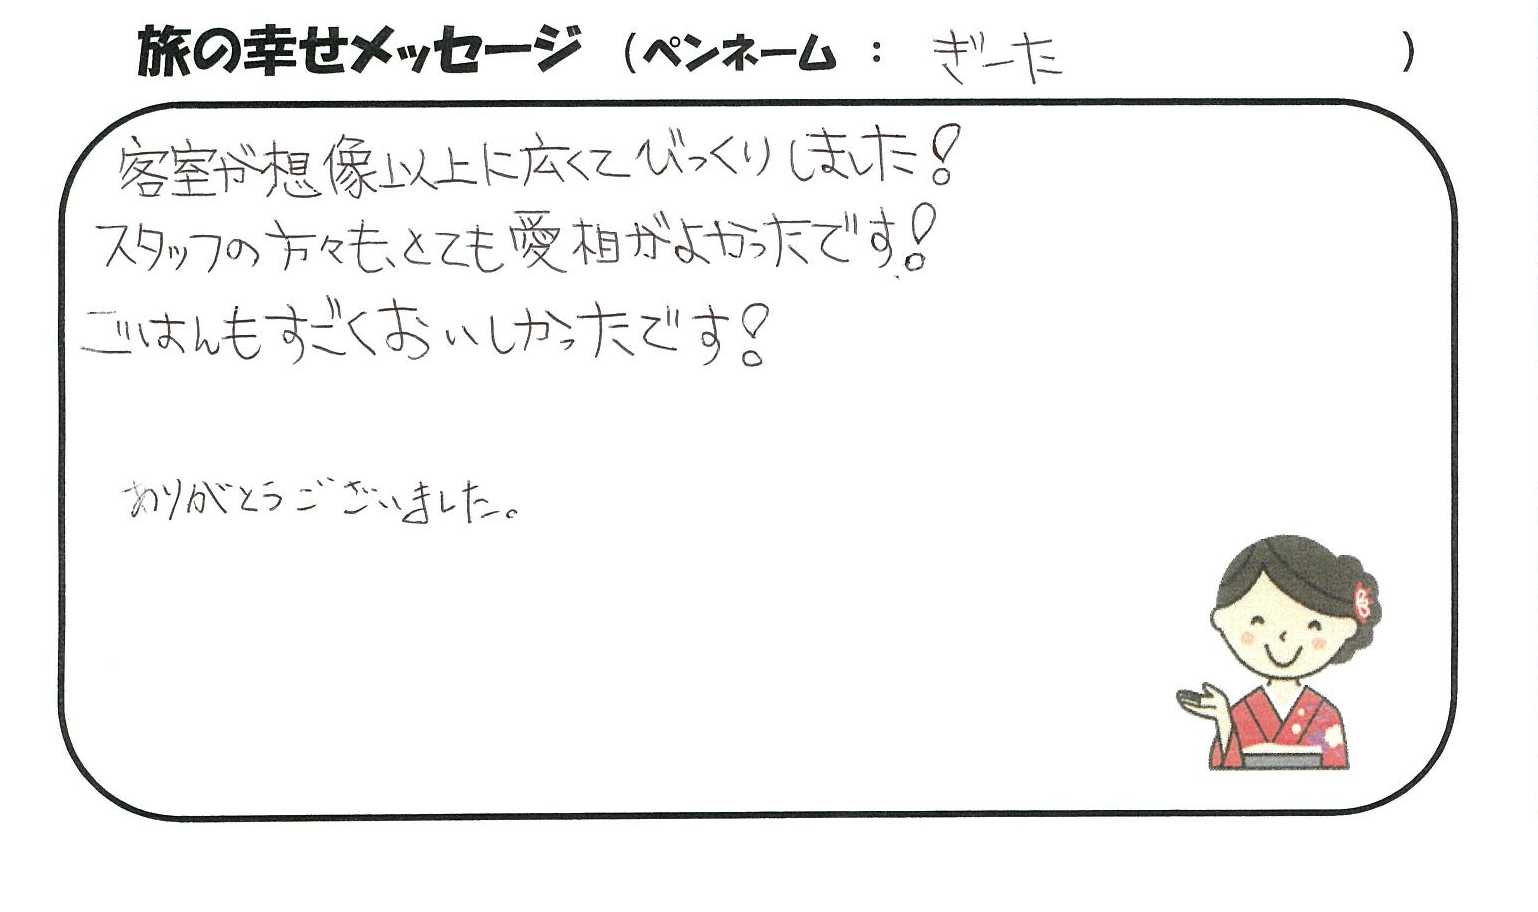 旅の幸せメッセージ (ペンネーム : ぎーた )
客室が想像以上に広くてびっくりしました!
スタッフの方々も、とても愛相がよかったです!
ごはんもすごくおいしかったです!
ありがとうございました。